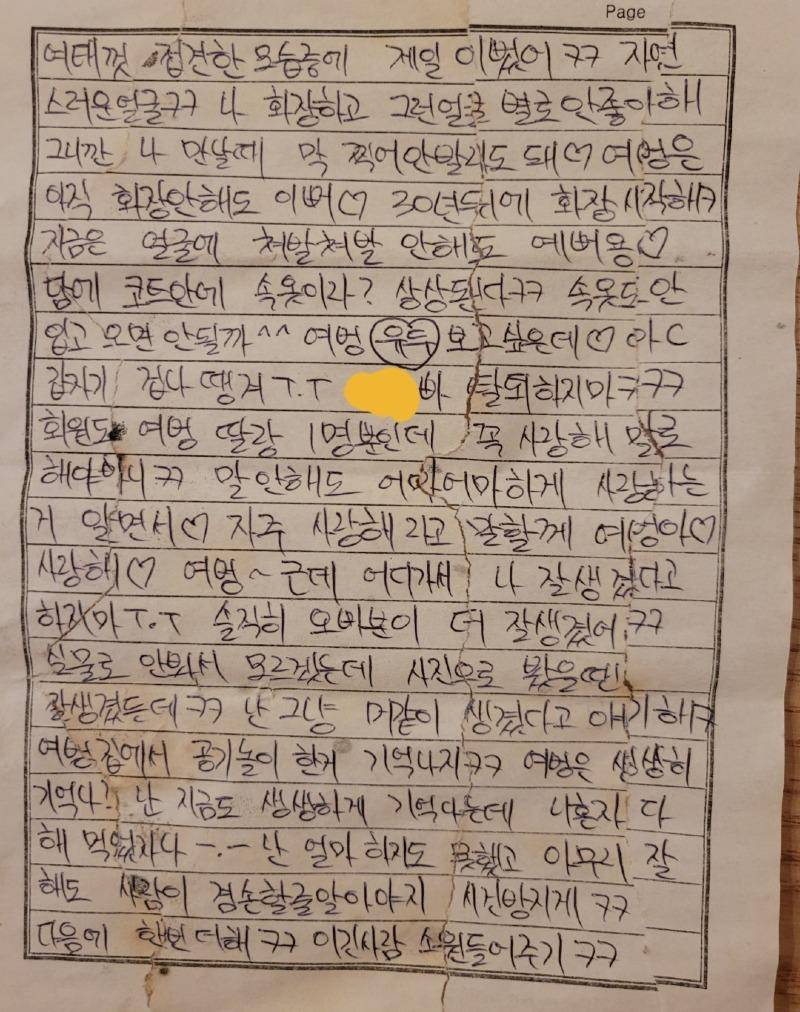 Page
여태껏 접견한 모습중에 제일 이뻤어 ㅋㅋ 자연
스러운얼굴ㅋㅋ 나 화장하고 그런얼굴 별로 안좋아해
그니깐 나 만날때 막 찍어안발라도 돼♡ 여벙은
아직 화장안해도 이뻐♡ 30년뒤에 화장 시작해ㅋ
지금은 얼굴에 쳐발쳐발 안해도 예뻐용♡
담에 코트안에 속옷이라? 상상된다ㅋㅋ 속옷도 안
입고 오면 안될까^^ 여벙 유독 보고싶은데♡ 아 C
갑자기 겁나 땡겨 T.T 빠 탈퇴하지마ㅋㅋㅋ
회원도 여벙 딸랑 1명뿐인데 꼭 사랑해 말로
해야아니ㅋㅋ 말 안해도 어마어마하게 사랑하는
거 알면서♡ 자주 사랑해라고 말할께 여벙아♡
사랑해♡ 여벙~ 근데 어디가서 나 잘생겼다고
하지마 T.T 솔직히 오빠분이 더 잘생겼어 ㅋㅋ
실물로 안봐서 모르겠는데 사진으로 봤을땐
잘생겼든데ㅋㅋ 난 그냥 머같이 생겼다고 얘기해ㅋ
여벙집에서 공기놀이 한거 기억나지ㅋㅋ 여벙은 생생히
기억나? 난 지금도 생생하게 기억나는데 나혼자 다
해 먹었자나 -.- 난 얼마 하지도 못했고 아무리 잘
해도 사람이 겸손할줄알아야지 시건방지게 ㅋㅋ
다음에 한번 더해 ㅋㅋ 이긴사람 소원들어주기 ㅋㅋ